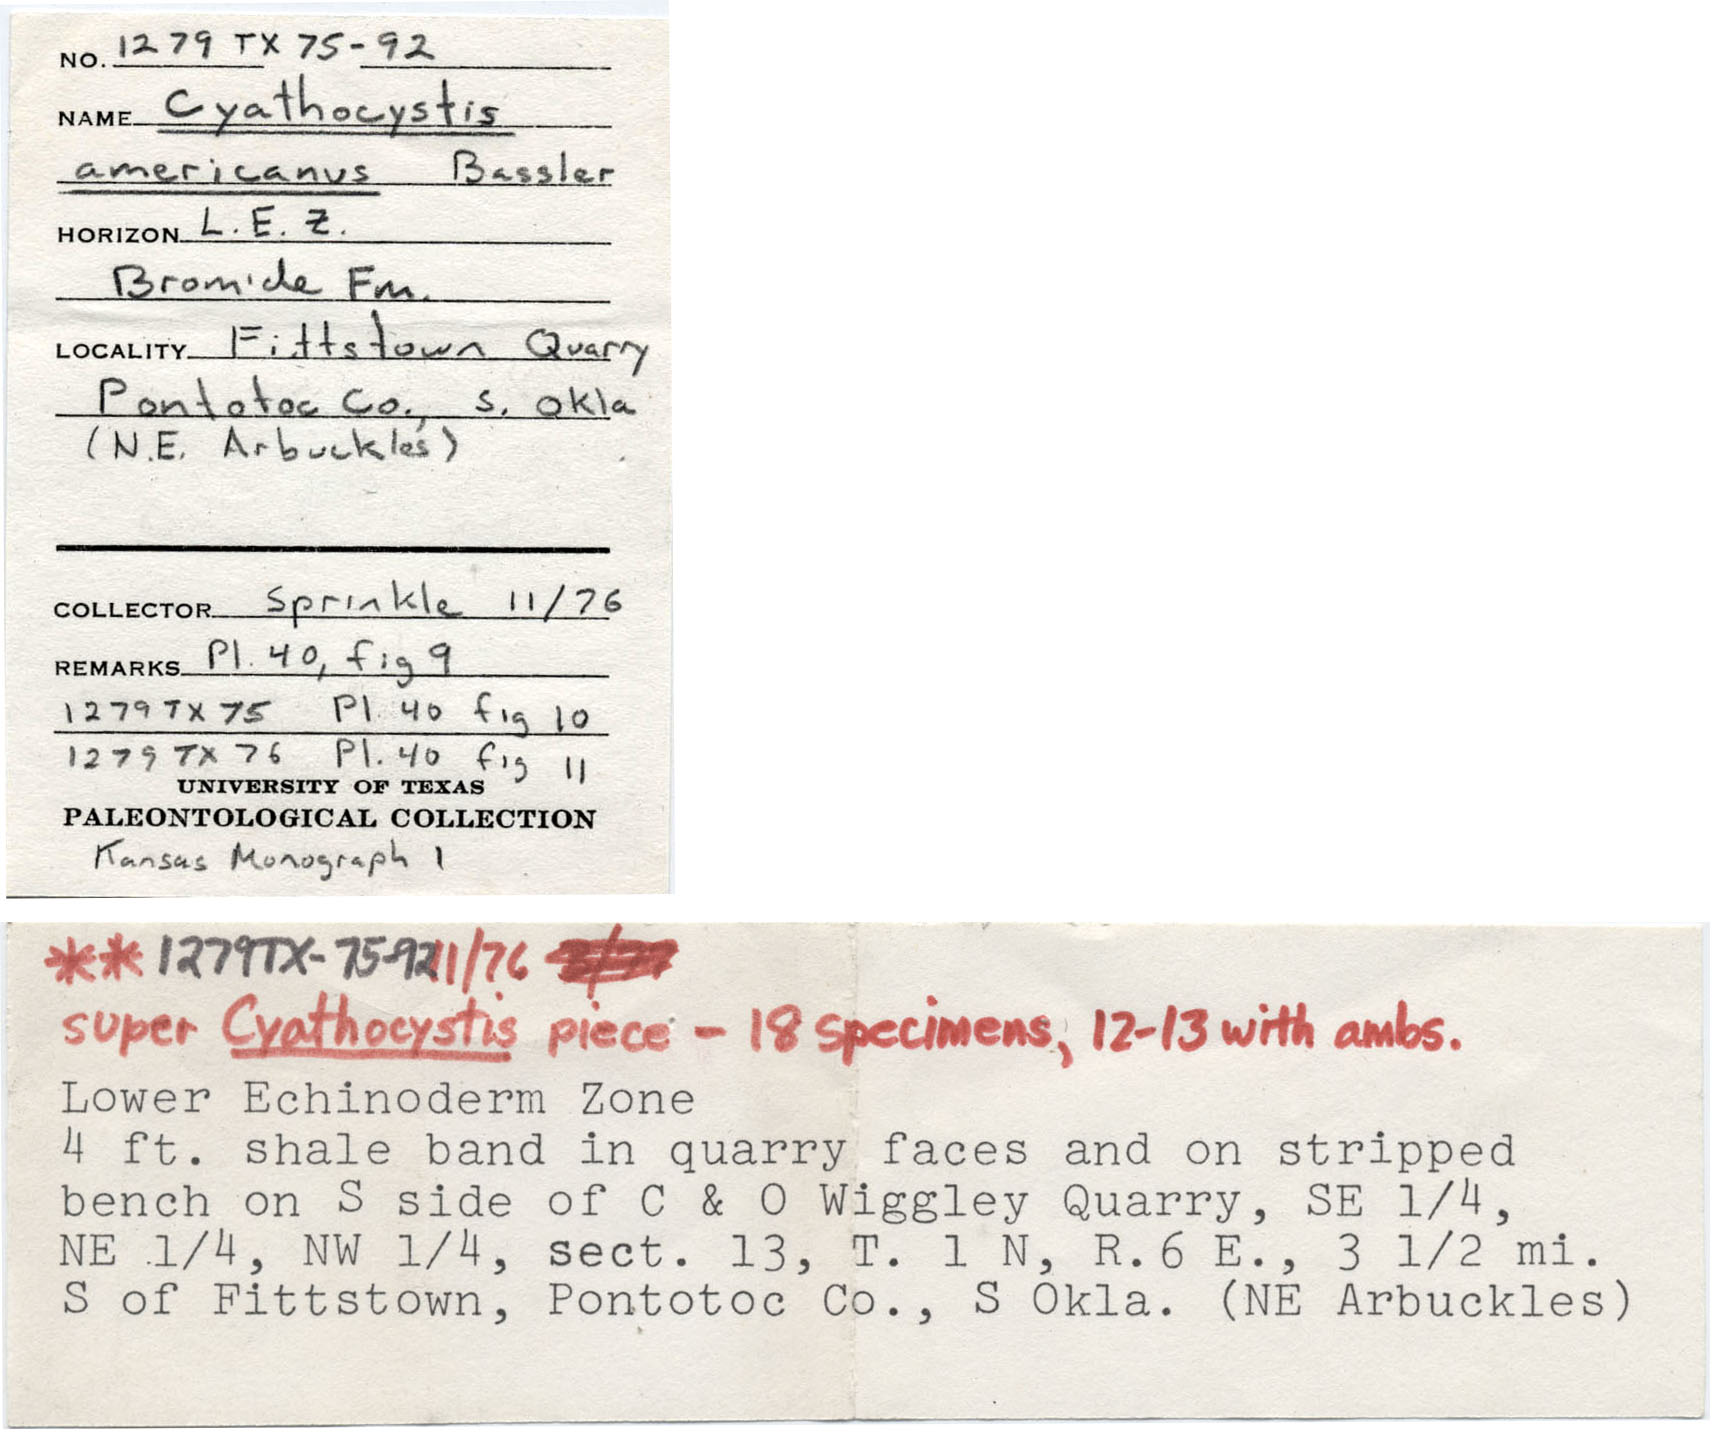 NO. 1279 TX 75-92
NAME Cyathocystis
americanus Bassler
HORIZON L.E.Z.
Bromide Fm.
LOCALITY Fittstown Quarry
Pontotoc Co., S. Okla
(N.E. Arbuckles)
COLLECTOR Sprinkle 11/76
REMARKS Pl. 40, fig 9
1279 TX 75 Pl. 40 fig 10
1279 TX 76 Pl. 40 fig 11
UNIVERSITY OF TEXAS
PALEONTOLOGICAL COLLECTION
Kansas Monograph 1
** 1279TX-75-92 11/76
super Cyathocystis piece - 18 specimens, 12-13 with ambs.
Lower Echinoderm Zone
4 ft. shale band in quarry faces and on stripped
bench on S side of C & O Wiggley Quarry, SE 1/4,
NE 1/4, NW 1/4, sect. 13, T. 1 N, R.6 E., 3 1/2 mi.
S of Fittstown, Pontotoc Co., S Okla. (NE Arbuckles)